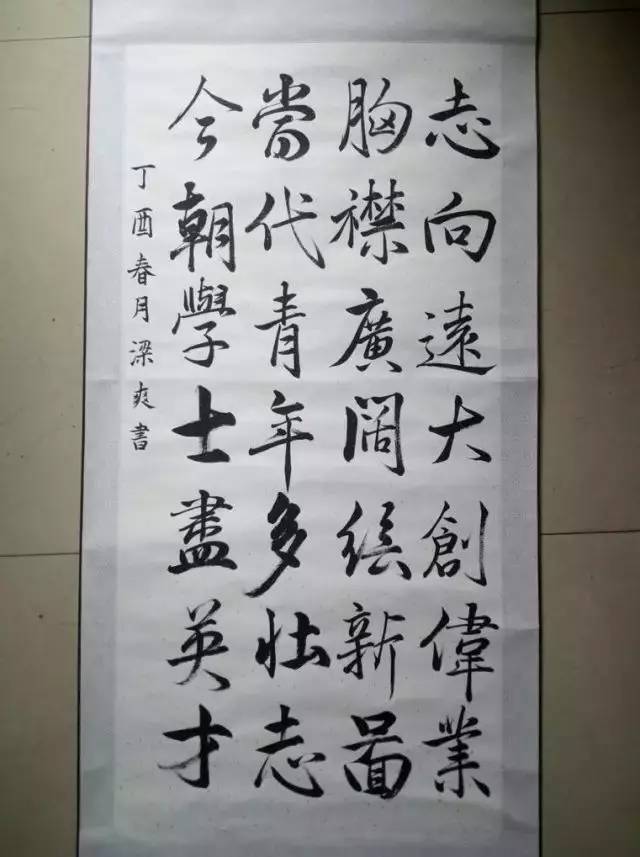 志向遠大創偉業
胸襟廣闊繪新圖
當代青年多壯志
今朝學士盡英才
丁酉春月梁爽書